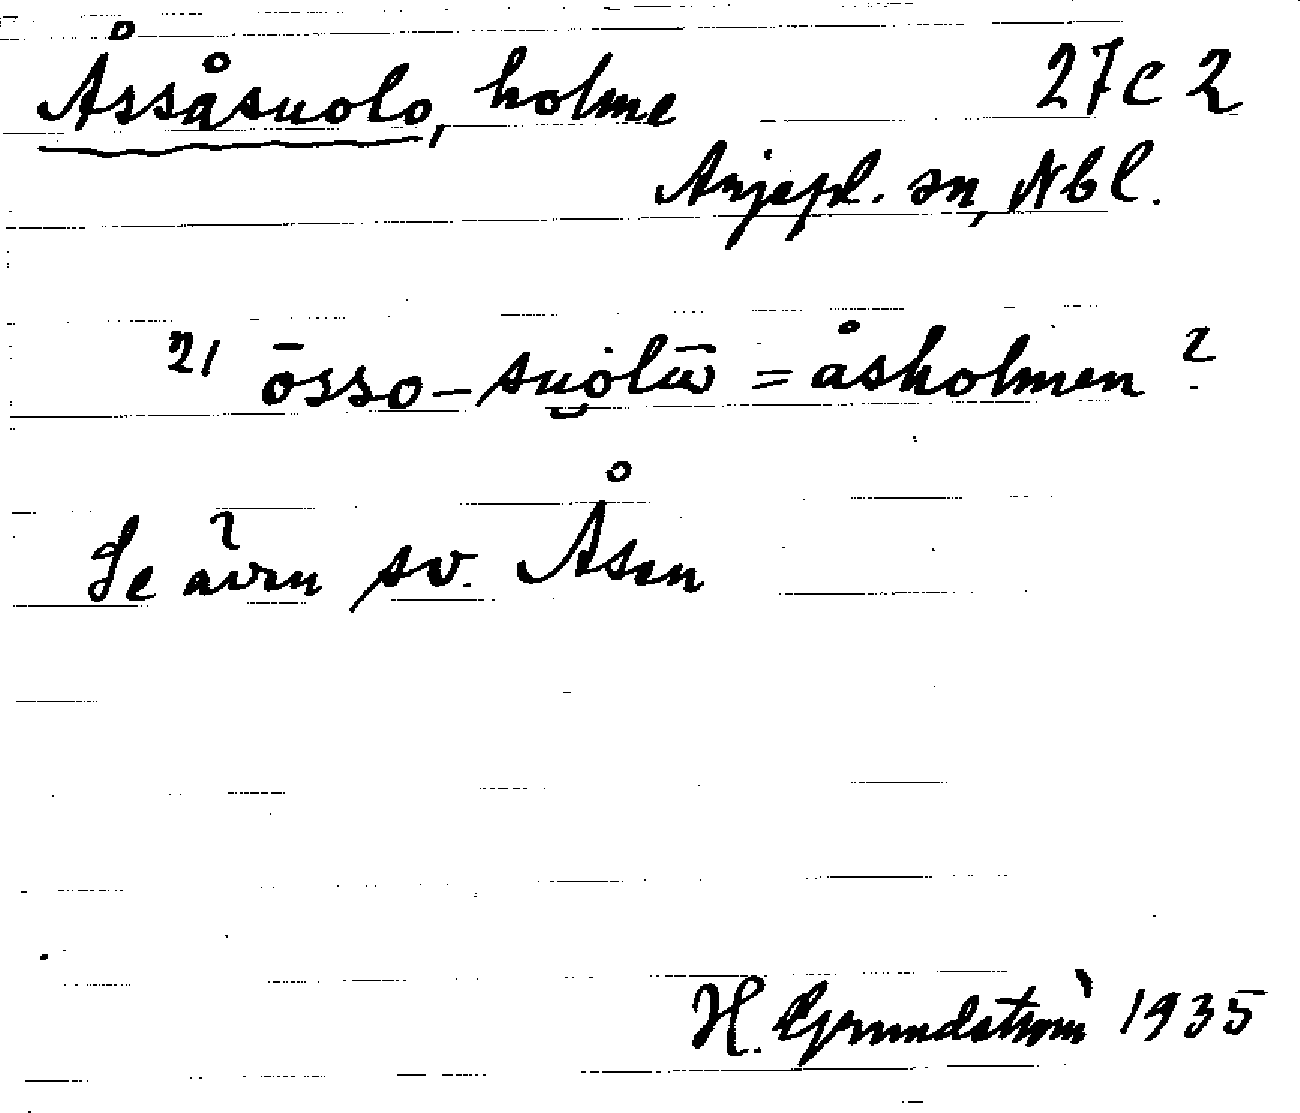 Åssåsuolo, holme 27C2
Arjepl. sn, Nbl.
21 ōsso-suo̮lu̅ = åsholmen?
Se även sv. Åsen
H. Grundström 1935